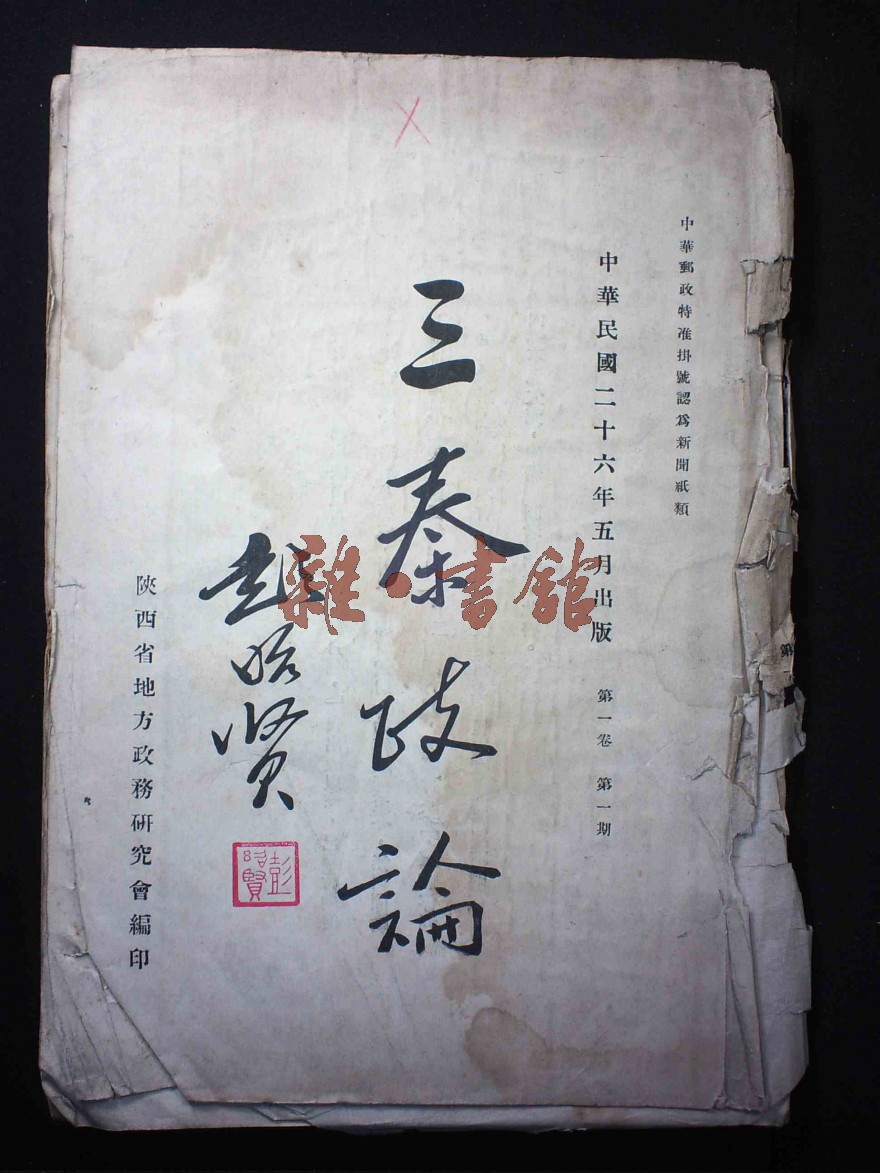 中華郵政特准掛號認爲新聞紙類
中華民國二十六年五月出版 第一卷 第一期
三秦政論
彭昭賢
彭昭賢
陝西省地方政務研究會編印
雜·書館
第